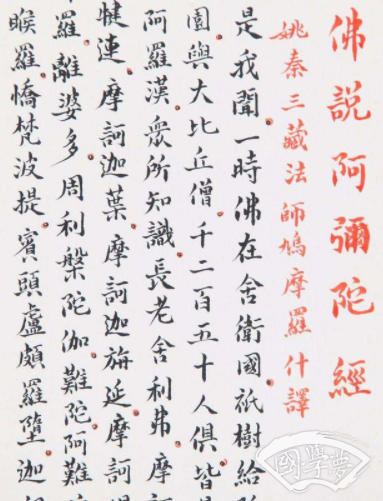 佛說阿彌陀經
姚秦三藏法師鳩摩羅什譯
是我聞一時佛在舍衛國祇樹給
園與大比丘僧千二百五十人俱皆
阿羅漢眾所知識長老舍利弗摩
犍連摩訶迦葉摩訶迦旃延摩訶
羅離婆多周利槃陀伽難陀阿難
睺羅憍梵波提賓頭盧頗羅墮迦
國學夢